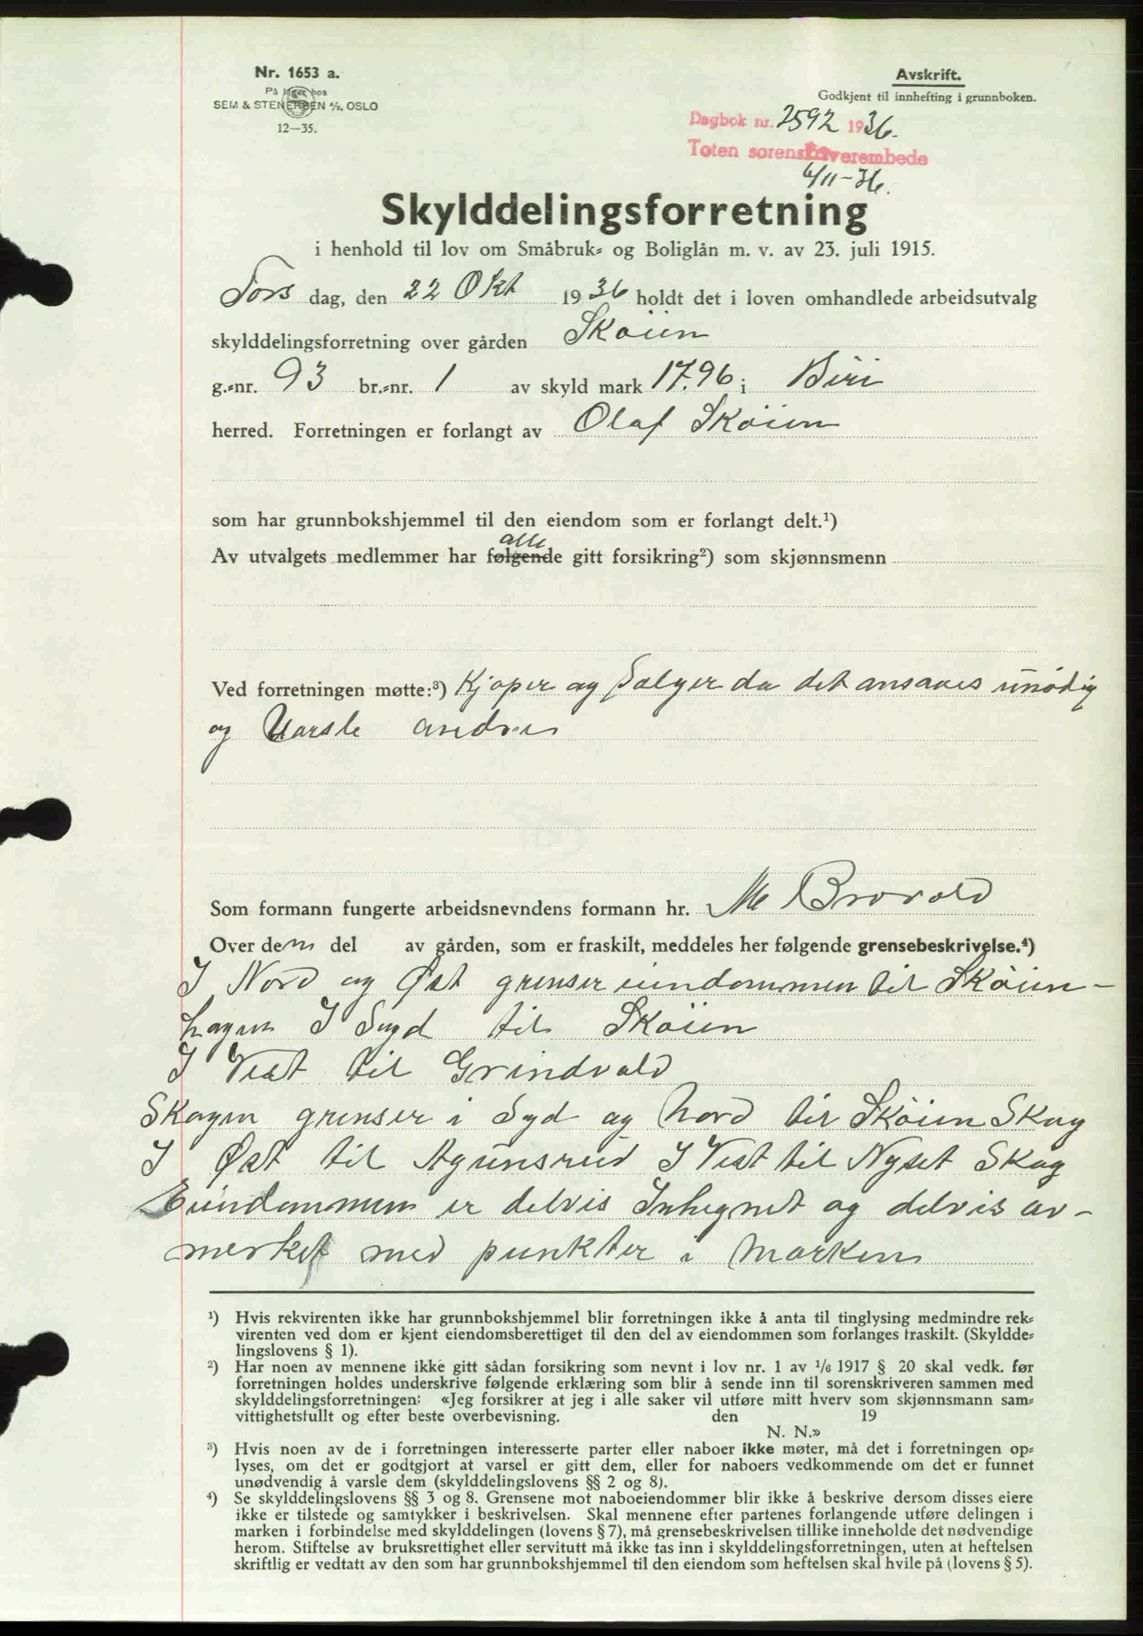 Nr. 1653 a.
På lager hos
SEM & STENERSEN A/S, OSLO
12—35.
Avskrift.
Godkjent til innhefting i grunnboken.
Dagbok nr. 2592 1936.
Toten sorenskriverembede
6/11-36.
Skylddelingsforretning
i henhold til lov om Småbruk- og Boliglån m. v. av 23. juli 1915.
Tors dag, den 22 Okt 1936 holdt det i loven omhandlede arbeidsutvalg
skylddelingsforretning over gården Skøien
g.-nr. 93 br.-nr. 1 av skyld mark 17.96 i Biri
herred. Forretningen er forlangt av Olaf Skøien
som har grunnbokshjemmel til den eiendom som er forlangt delt.¹)
alle
Av utvalgets medlemmer har følgende gitt forsikring²) som skjønnsmenn
Ved forretningen møtte:³) Kjøper og Sælger da det ansaaes unødig
og Varsle andre
Som formann fungerte arbeidsnevndens formann hr. M Brovold
Over dem del av gården, som er fraskilt, meddeles her følgende grensebeskrivelse.⁴)
I Nord og Øst grenser eiendommen til Skøien-
hagen I Syd til Skøien
I Vest til Grindvold
Skogen grenser i Syd og Nord til Skøien Skog
I Øst til Agunsrud I Vest til Nyset Skog
Eiendommen er delvis Inhegnet og delvis av-
merket med punkter i Marken
¹) Hvis rekvirenten ikke har grunnbokshjemmel blir forretningen ikke å anta til tinglysing medmindre rek-
virenten ved dom er kjent eiendomsberettiget til den del av eiendommen som forlanges fraskilt. (Skyldde-
lingslovens § 1).
²) Har noen av mennene ikke gitt sådan forsikring som nevnt i lov nr. 1 av 1/6 1917 § 20 skal vedk. før
forretningen holdes underskrive følgende erklæring som blir å sende inn til sorenskriveren sammen med
skylddelingsforretningen: «Jeg forsikrer at jeg i alle saker vil utføre mitt hverv som skjønnsmann sam-
vittighetsfullt og efter beste overbevisning. den 19
N. N.»
³) Hvis noen av de i forretningen interesserte parter eller naboer ikke møter, må det i forretningen op-
lyses, om det er godtgjort at varsel er gitt dem, eller for naboers vedkommende om det er funnet
unødvendig å varsle dem (skylddelingslovens §§ 2 og 8).
⁴) Se skylddelingslovens §§ 3 og 8. Grensene mot naboeiendommer blir ikke å beskrive dersom disses eiere
ikke er tilstede og samtykker i beskrivelsen. Skal mennene efter partenes forlangende utføre delingen i
marken i forbindelse med skylddelingen (lovens § 7), må grensebeskrivelsen tillike inneholde det nødvendige
herom. Stiftelse av bruksrettighet eller servitutt må ikke tas inn i skylddelingsforretningen, uten at heftelsen
skriftlig er vedtatt av den som har grunnbokshjemmel til den eiendom som heftelsen skal hvile på (lovens § 5).